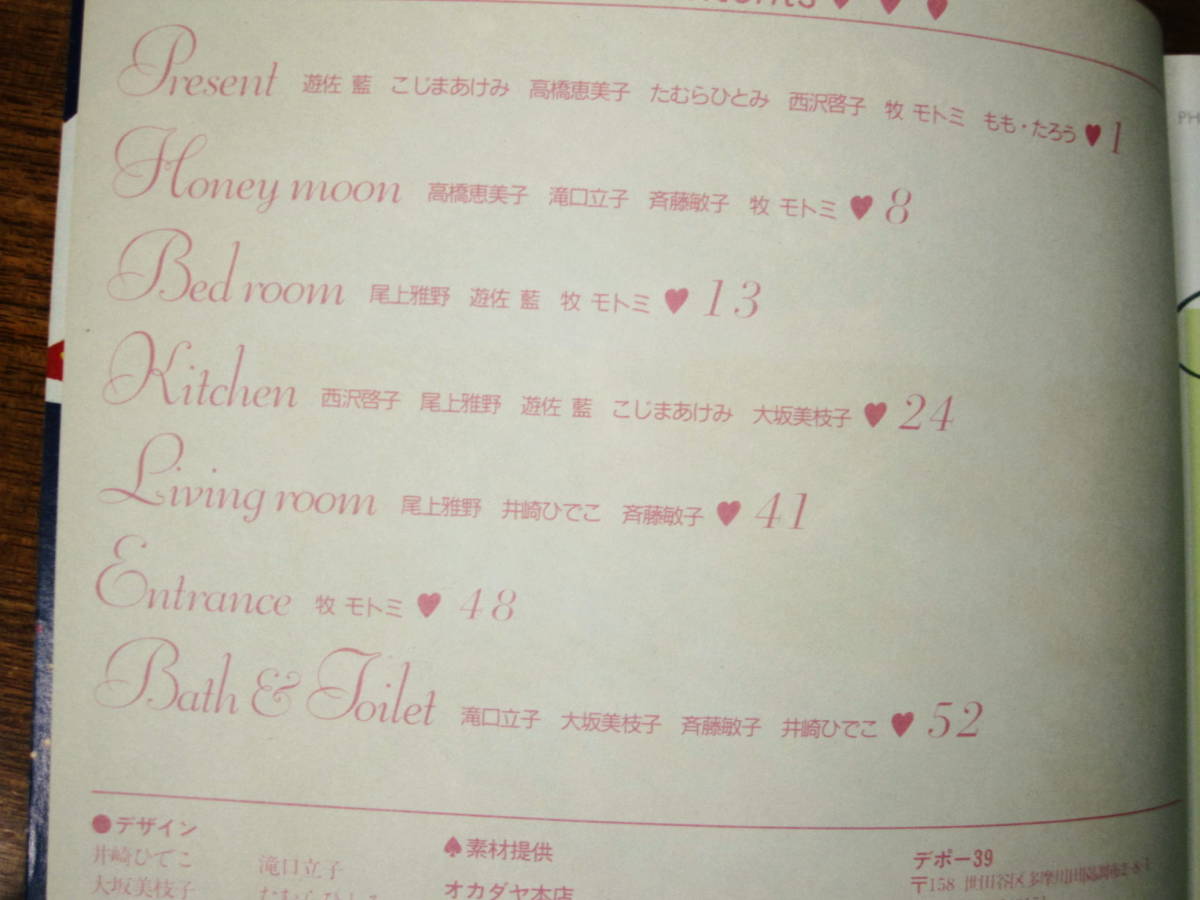 Present 遊佐 藍 こじまあけみ 高橋恵美子 たむらひとみ 西沢啓子 牧 モトミ もも・たろう ♥ 1
Honey moon 高橋恵美子 滝口立子 斉藤敏子 牧 モトミ ♥ 8
Bed room 尾上雅野 遊佐 藍 牧 モトミ ♥ 13
Kitchen 西沢啓子 尾上雅野 遊佐 藍 こじまあけみ 大坂美枝子 ♥ 24
Living room 尾上雅野 井崎ひでこ 斉藤敏子 ♥ 41
Entrance 牧 モトミ ♥ 48
Bath & Toilet 滝口立子 大坂美枝子 斉藤敏子 井崎ひでこ ♥ 52
●デザイン
井崎ひでこ 滝口立子
大坂美枝子
♠素材提供
オカダヤ本店
デポー39
〒158 世田谷区多摩川田園調布2-8-1
PH